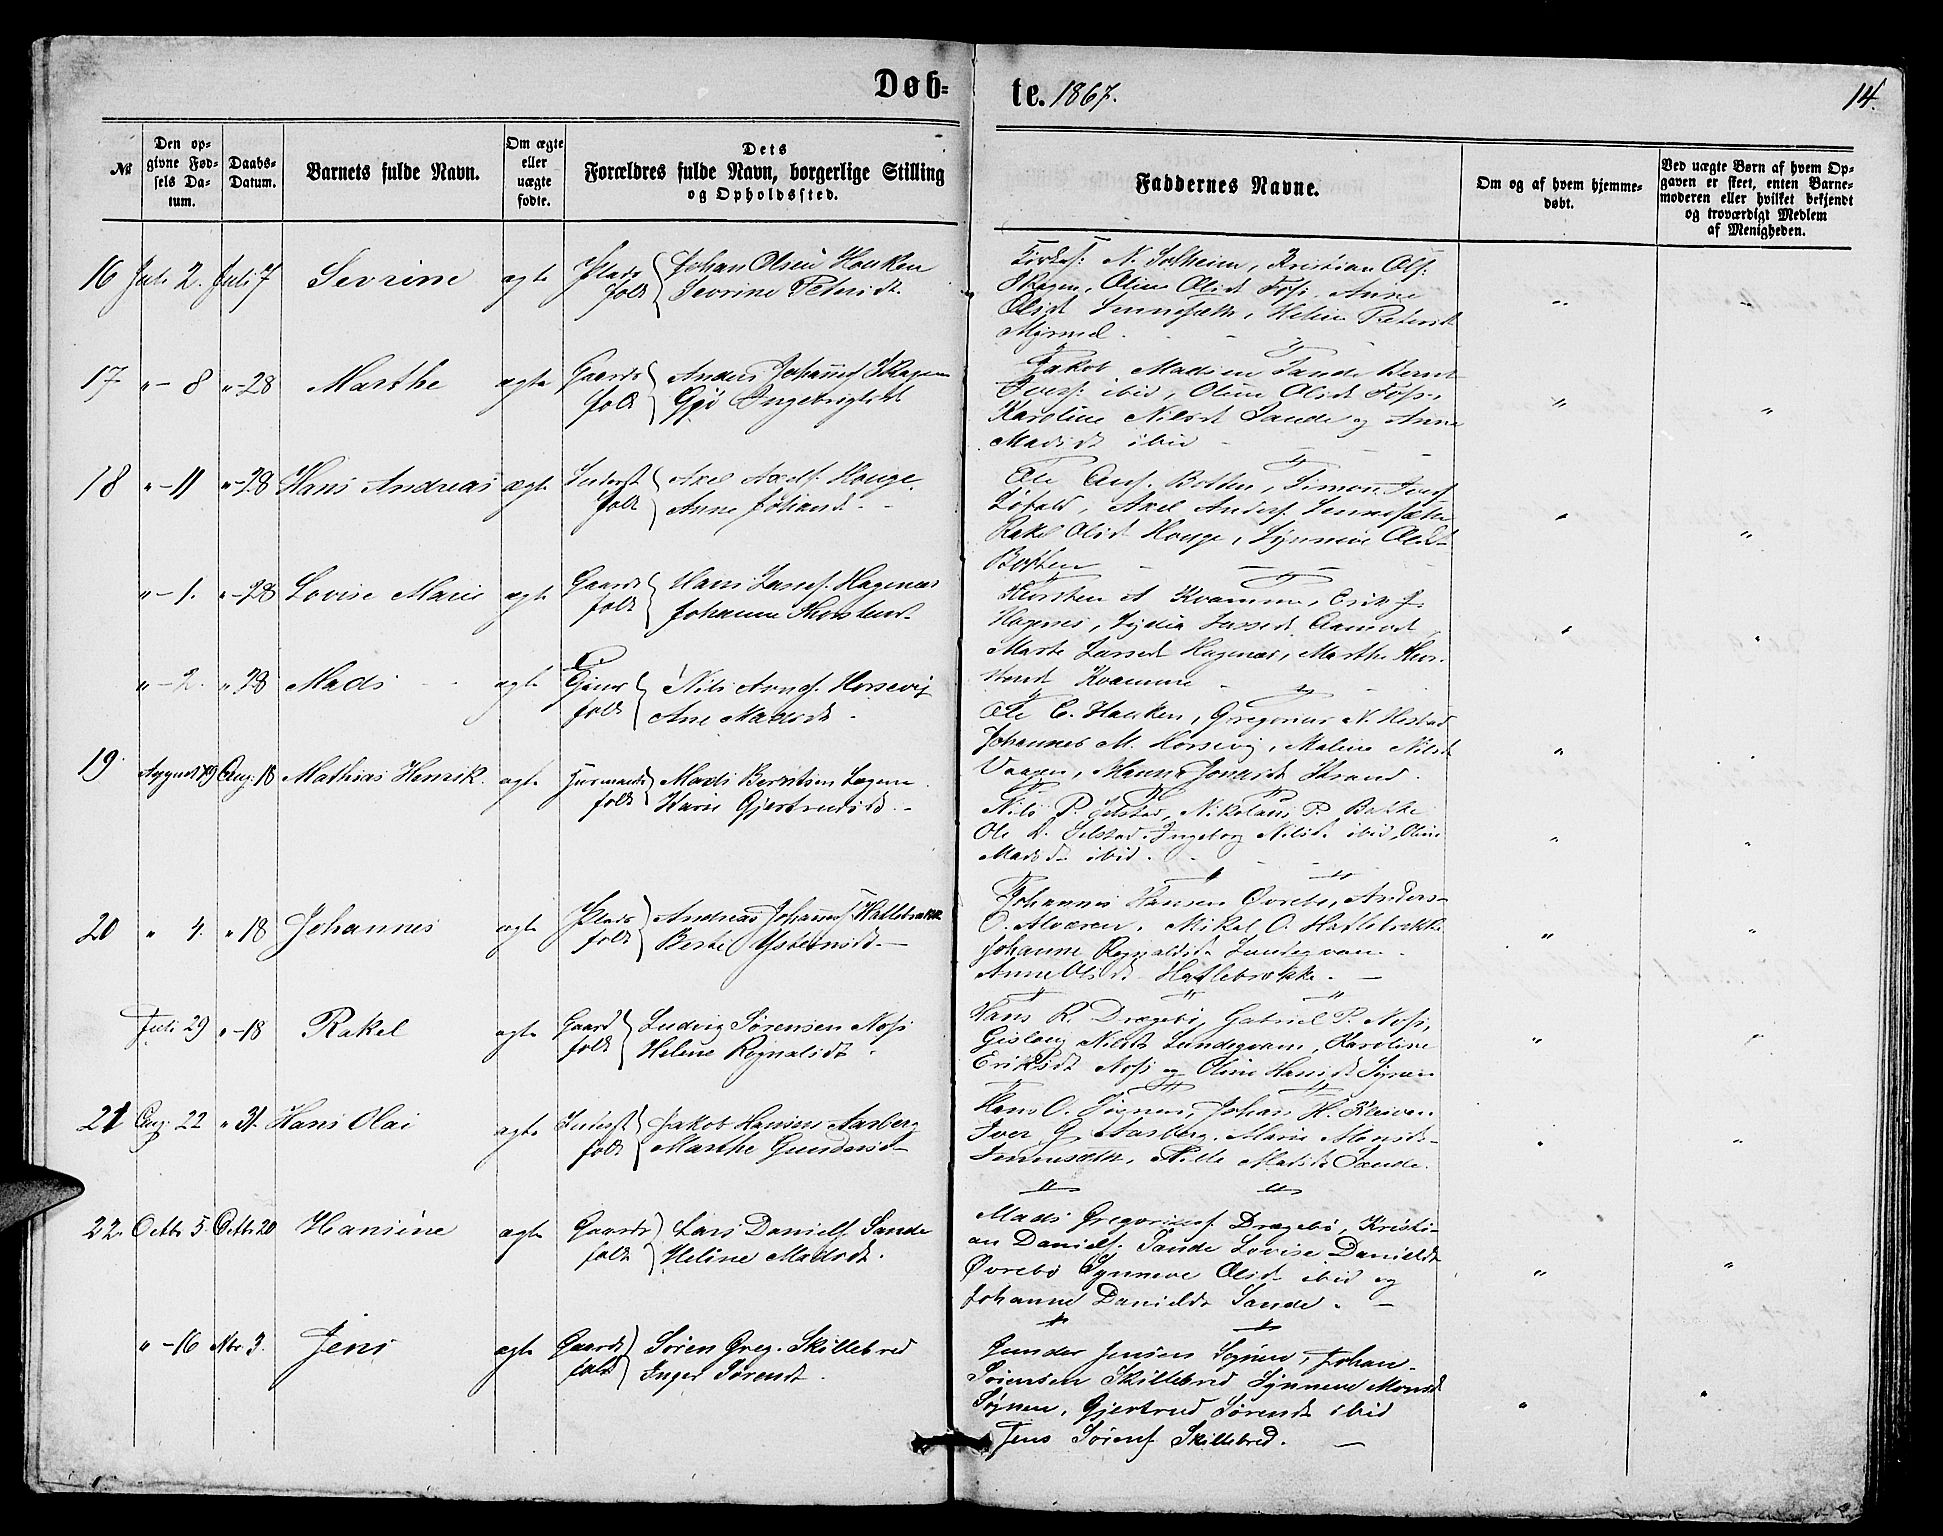 Døb-
te. 1867.
14.
№
Den op-
givne Fød-
sels Da-
tum.
Daabs-
Datum.
Barnets fulde Navn.
Om ægte
eller
uægte
fødte.
Dets
Forældres fulde Navn, borgerlige Stilling
og Opholdssted.
Faddernes Navne.
Om og af hvem hjemme-
døbt.
Ved uægte Børn af hvem Op-
gaven er skeet, enten Barne-
moderen eller hvilket bekjendt
og troværdigt Medlem
af Menigheden.
16 Juli 2. Juli 7 Sevrine ægte Plads
folk
Johan Olsen Houken
Sevrine Petersdt.
Kirkes: N. Solheim, Kristian Ols:
Skagen, Oline Olsdt Foss, Anne
Olsdt Sennesæth, Heline Petersdt
Myrmel.
17 " - 8 " - 28 Marthe ægte Gaards
folk
Anders Johannes: Skagen
Ingebrigtsdt
Jakob Madsen Sande Bernt
Ivers: ibid, Oline Olsdt Foss,
Karoline Nilsdt Sande og Anne
Madsdt ibid
18 " - 11 " - 28 Hans Andreas ægte Inderst
folk
Axel Axels. Houge.
Anne Johansdt.
Ole Botten, Simon Ivers
Axel Anders: Sennesæth
Rakel Olsdt Houge, Synneve Olsdt
Botten
" - 1. " - 28 Lovise Marie ægte Gaards
folk
Hans Lasses. Hagenæs
Johanne Thorstensdt.
Thorsten A Kvamme, Erik J.
Hagenes, Lydia Lassedt Aamodt
Marte Lassedt Hagenæs, Marthe Thor-
stensdt Kvamme
" - 2. " 28 Mads ægte
folk
Nils Arnes. Horsevig
Ane Madsdt.
Ole C. Hauken, Gregorius N. Hestad
Johannes M. Horsevig, Malene Nilsdt
Vaagen, Jonasdt Strand.
19. August 19 Aug. 18 Mathias Henrik. ægte Huusmands
folk
Mads Berntsen
Karie Gjertrudsdt.
Nils P. Jelstad, Nikolaus P. Bakke
Ole Jelstad. Ingeborg Nilsdt. ibid, Oline
Madsdt ibid.
20 " 4. " 18 Johannes ægte Plads
folk
Andreas Johannes. Hatlebrække
Berte Ystensdt.
Johannes Hansen Øvrebø, Anders
O. Alværen. Mikal O. Hatlebrekke
Johanne Rognaldsdt.
Anne Olsdt. Hatlebrekke.
Juli 29 " - 18 Rakel ægte Gaard
folk
Ludvig Sørensen Noss
Helene Rognaldsdt.
Hans R. Drægebø, Gabriel P. Noss,
Gislaug Nilsdt Karoline
Eriksdt Noss og Oline Hansdt Sygnen
21 Aug. 22 " 31. Hans Olai ægte Inderst
folk
Jakob Hansen Aarberg
Marthe Gundersdt
Hans O. Sognen, Johan H. Kleiven
Iver G. Aarberg. Marie Monsdt.
Sennesæth, Pille Madsdt Sande.
22. Octb. 5. Octb. 20 Hansine ægte Gaards
folk
Lars Daniels Sande
Heline Madsdt.
Mads Gregorius. Drægebø, Kristi-
an Daniels. Sande Lovise Danieldt
Øvrebø Synneve Olsdt. ibid og
Johanne Danieldt Sande.
" - 16 Nbr 3. Jens ægte Gaards
folk
Søren Greg. Skillebred
Inger Sørensdt.
Gunder Jensen Sognen, Johan
Sørensen Skillebred Synneve Monsdt
Sognen, Gjertrud Sørensdt ibid
Jens Sørens Skillebred.